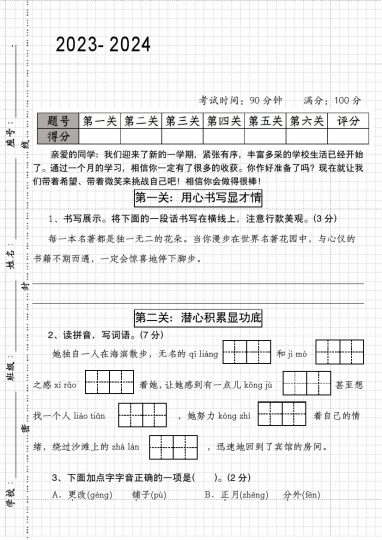 2023-2024
考试时间：90分钟 满分：100分
题号 第一关 第二关 第三关 第四关 第五关 第六关 评分
得分
亲爱的同学：我们迎来了新的一学期，紧张有序，丰富多采的学校生活已经开始
了。通过一个月的学习，相信你一定有了很多的收获。你作好准备了吗？现在就让我
们带着希望、带着微笑来挑战自己吧！相信你会做得很棒！
第一关：用心书写显才情
1、书写展示。将下面的一段话书写在横线上，注意行款美观。(3分)
每一本名著都是独一无二的花朵。当你漫步在世界名著花园中，与心仪的
书籍不期而遇，一定会惊喜地停下脚步。
第二关：潜心积累显功底
2、读拼音，写词语。(7分)
她独自一人在海滨散步，无名的 qī liáng 和 jì mò
之感 xí rǎo 着她，让她感到有一点儿 kǒng jù 甚至想
找一个人 liáo tiān ，她努力 kòng zhì 着自己的情
绪，绕过沙滩上的 zhà lán ，迅速地回到了宾馆的房间。
3、下面加点字字音正确的一项是( )。(2分)
A．更改(gēng) 铺子(pù) B．正月(zhēng) 分外(fēn)
座号：
姓名：
班级：
学校：
线
封
密